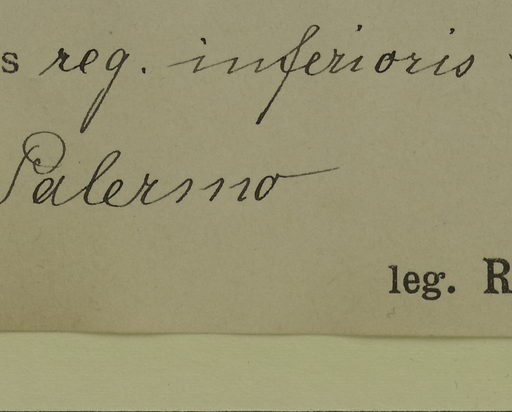 s reg. inferioris
Palermo
leg. R